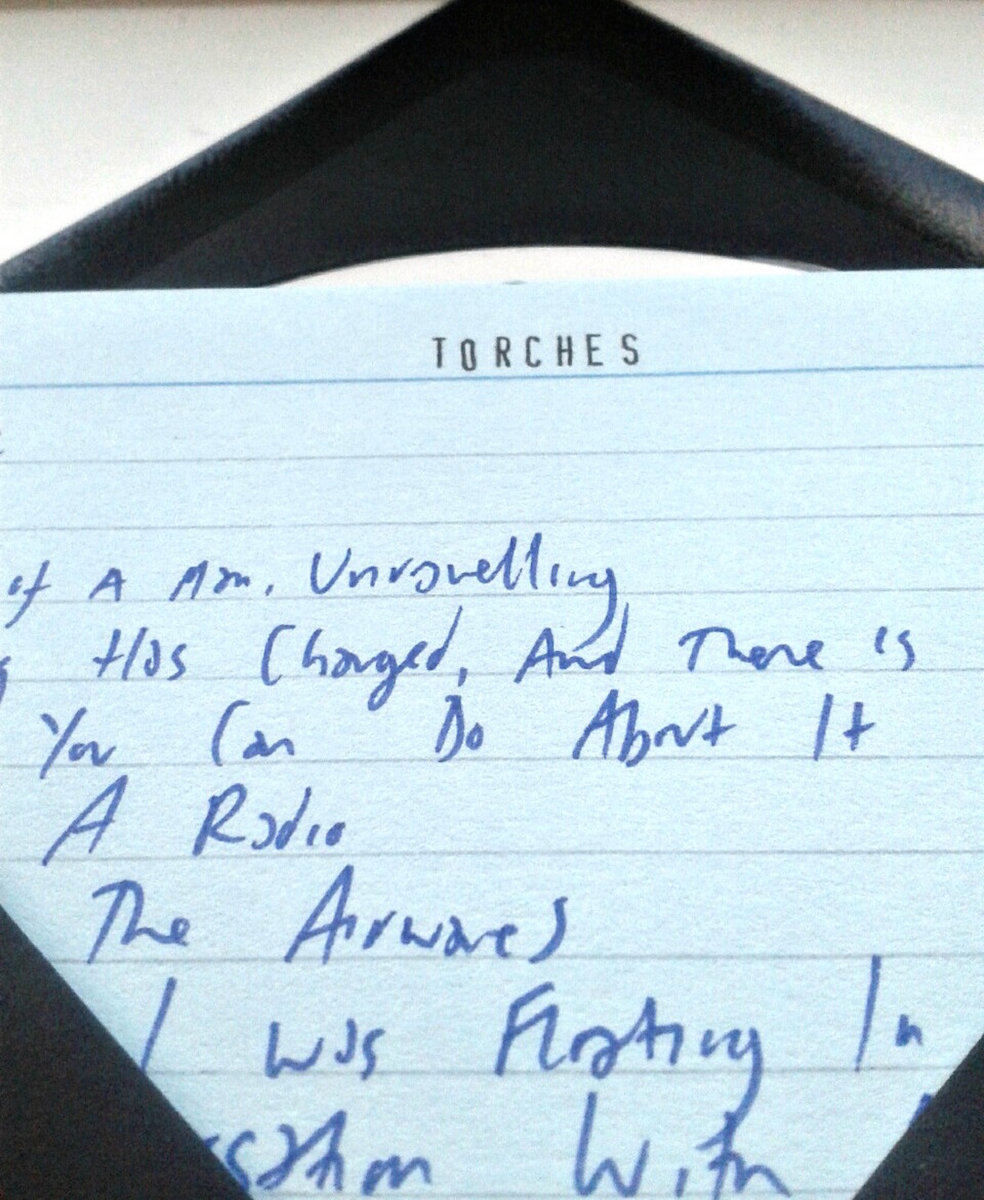 TORCHES
of A Man, Unravelling
Has Changed, And There is
You Can Do About It
A Radio
The Airwaves
I Was Floating In
sation With